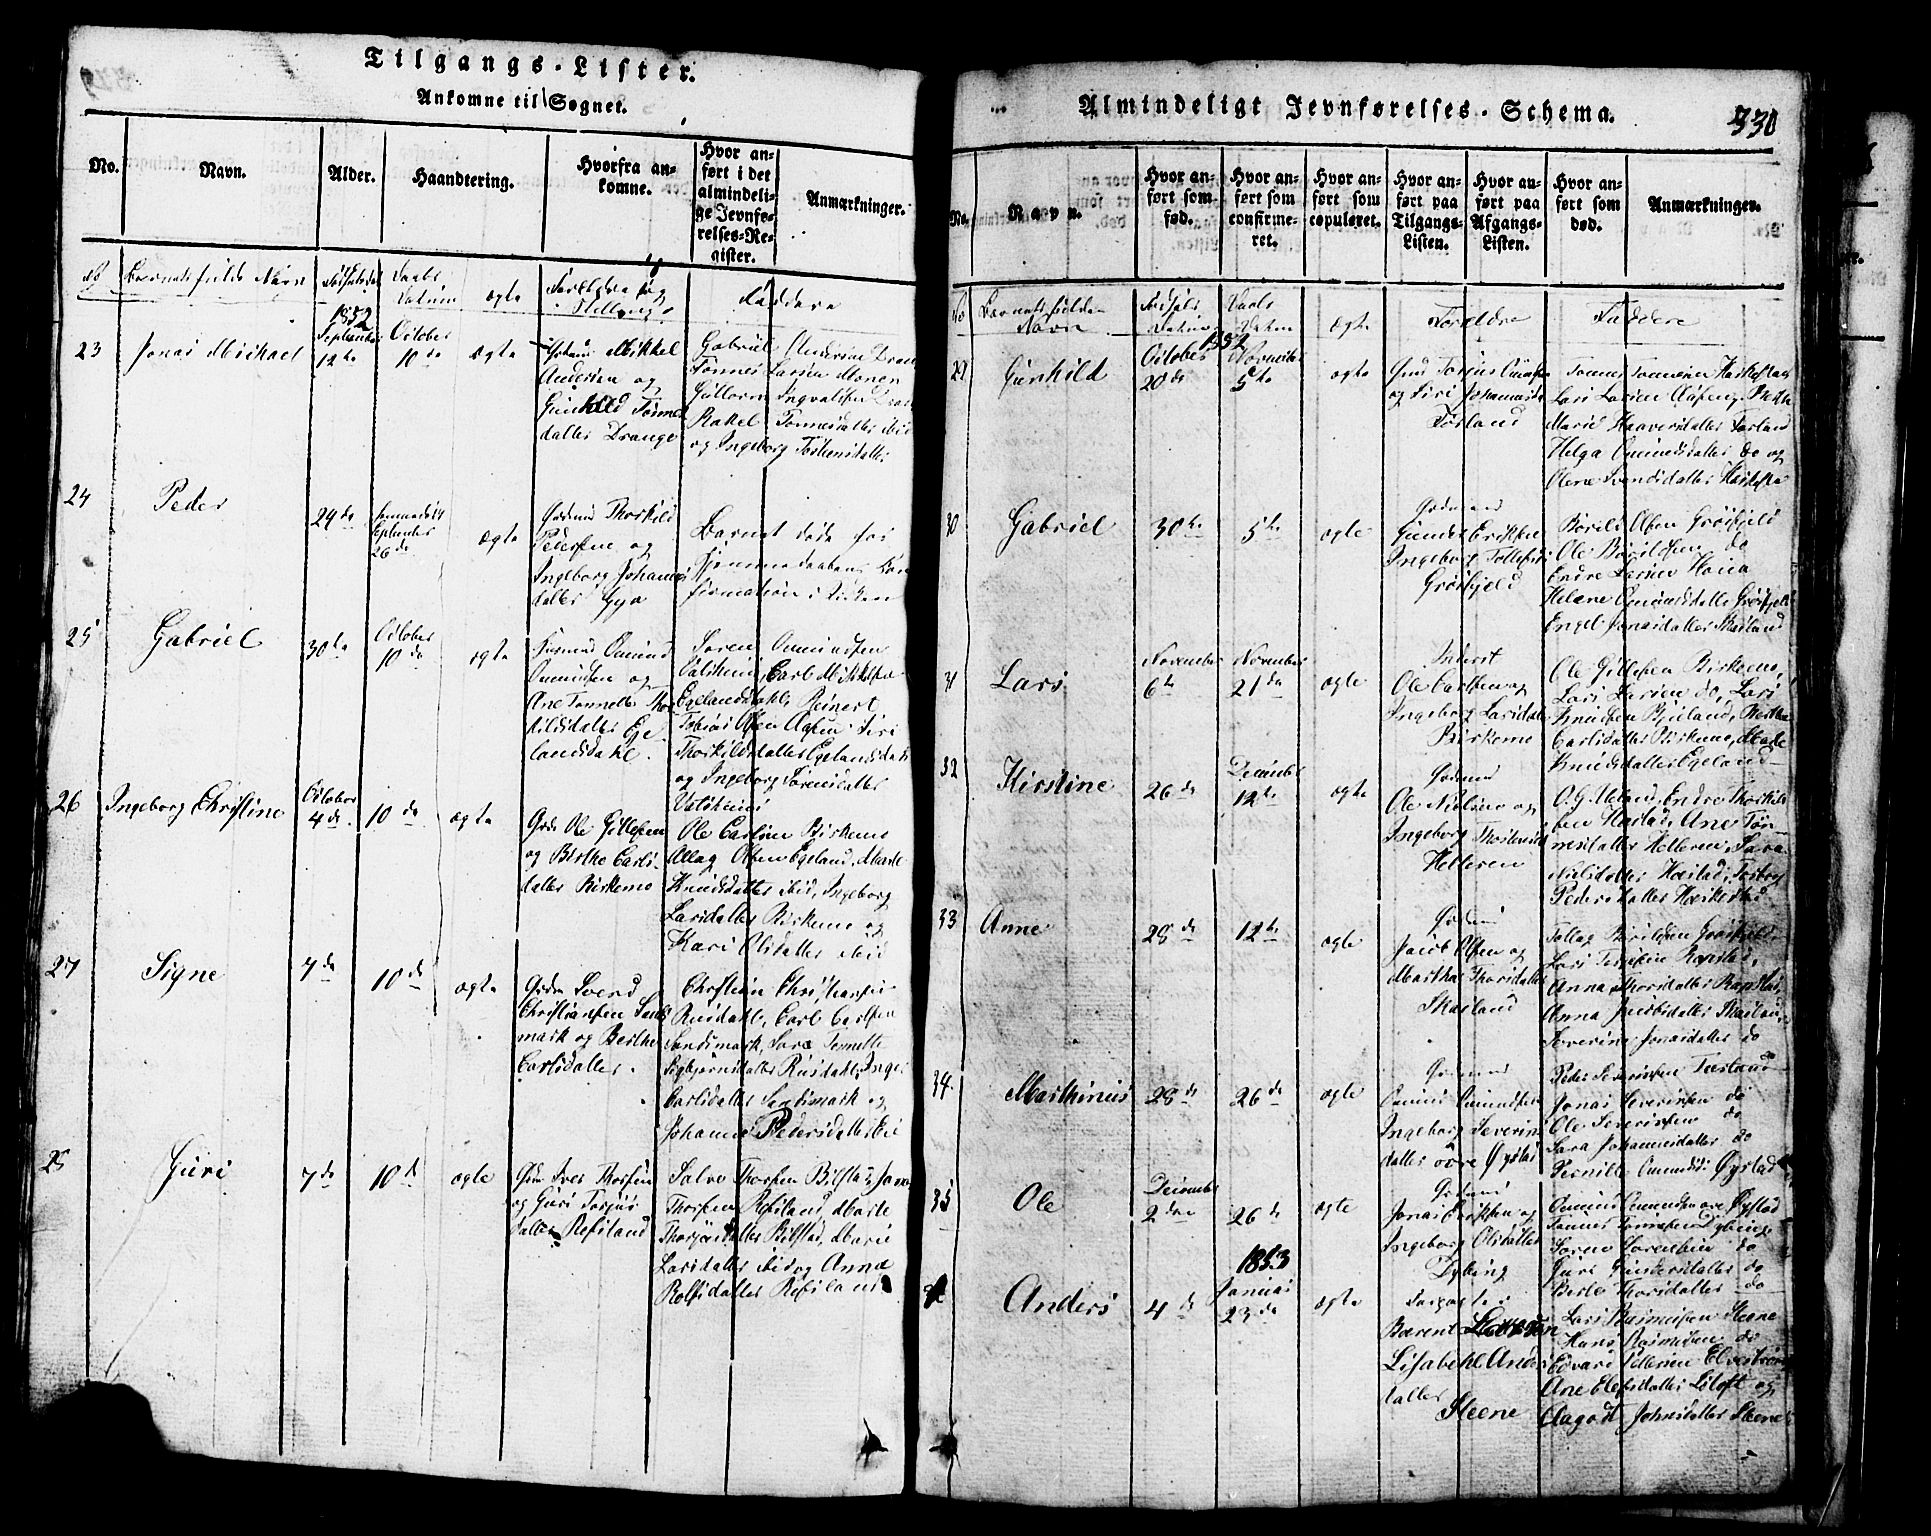 Tilgangs-Lister.
Ankomne til Sognet.
No.
Navn.
Alder.
Haandtering.
Hvorfra an-
komne.
Hvor an-
ført i det
almindeli-
ge Jevnfø-
relses-Re-
gister.
Anmærkninger.
Barnets fulde Navn
Daabs
Datum
ægte
Forældre og
Stilling
Faddere
23
Jonas Michael
1852
September
12te
October
10de
ægte
Mikkel
Andersen og
Gunhild Tønnes
datter Drange
Gabriel Andersen
Tønnes Larsen Monen
Guttorm Ingvaldsen
Rakel Tønnesdatter ibid
og Ingeborg
24
Peder
24de
September
26de
ægte
Gaardmd Thorkild
Pedersen og
Ingeborg Johannes
datter Gya
Barnet døde før
Hjemmedaabens Con
firmation i Kirken
25
Gabriel
30te
October
10de
ægte
Omund
Omundsen og
Ane Tonnette Thor
kildsdatter Ege
landsdahl.
Søren Omundsen
Carl Mikkelsen
Egelandsdahl, Reinert
Tobias Olsen
Thorkildsdatter Egelandsdahl
og Ingeborg Sørensdatter
26
Ingeborg Christine
October
4de
10de
ægte
Gdm Ole Gittesen
og Berthe Carls-
datter Birkemo
Ole Carlsen Birkemo
Aslag Olsen Egeland, Marte
Knudsdatter ibid, Ingeborg
Larsdatter Birkemo og
Kari Olsdatter ibid
27
Signe
7de
10de
ægte
Gdm Svend
Christiansen Sand
mark og Berthe
Carlsdatter.
Christian Christiansen
Rusdahl, Carl Carlsen
Sandsmark, Sara Tonette
Sigbjørnsdatter Rusdahl, Inger
Carlsdatter Sandsmark og
Johanne Pedersdatter ibid
28
Guri
7de
10de
ægte
Gdm Iver Thorsen
og Guri Torjus
datter Refsland
Salve Thorsen Bilstad, Jonas
Thorsen Refsland, Marte
datter Bilstad, Marie
Larsdatter ibid og Anna
Rolfsdatter Refsland
Almindeligt Jevnførelses-Schema.
330
No.
Navn.
Hvor an-
ført som
fød.
Hvor an-
ført som
confirme-
ret.
Hvor an-
ført som
copuleret.
Hvor an-
ført paa
Tilgangs-
Listen.
Hvor an-
ført paa
Afgangs-
Listen.
Hvor an-
ført som
død.
Anmærkninger.
No
Barnets fulde
Navn
Fødsels
Datum
Daabs
Datum
ægte
Forældre
Faddere
29
Gunhild
1852
October
20de
November
5te
ægte
Gmd Torjus
og Siri Johannesdr
Førland
Tønnes Tønnesen
Lars Larsen
Marie Haaversdatter Førland
Helga Omundsdatter do og
Olene Svendsdatter
30
Gabriel
30te
5te
ægte
Gaardmand
Gunder Eriksen
Ingeborg Tollefsdr
Grøsfjeld
Børild Olsen Grøsfjeld
Ole Børildsen do
Endre Larsen
Helene Omundsdatter Grøsfjeld
Engel Jonasdatter Skaaland
31
Lars
November
6te
November
21de
ægte
Inderst
Ole Carlsen og
Ingeborg Larsdatter
Birkemo
Ole Gittesen Birkemo,
Lars Larsen do, Lars
Knudsen Bjuland, Berthe
Carlsdatter Birkemo, Marte
Knudsdatter Egeland
32
Kirstine
26de
December
12te
ægte
Gaardmd
Ole Nielsen og
Ingeborg Thorkildsdr
Helleren
O. G. Ueland, Endre Thorkild
sen Hæstad, Ane Tøn-
nesdatter Helleren, Sara
Nilsdatter Hæstad, Torborg
Pedersdatter Hæskestad
33
Anne
28de
12te
ægte
Gaardmd
Jacob Olsen og
Martha Thorsdatter
Skaaland
Tollag Børildsen Grøsfjeld
Lars Rapstad,
Anna Thorsdatter Rapstad,
Anna Jacobsdatter Skaaland
Severine Jonasdatter do
34
Marthinius
28de
26de
ægte
Gaardmand
Omund Omundsen
Ingeborg Severins
datter øvre Øystad
Peder Severinsen
Jonas Severinsen do
Ole Severinsen do
Sara Johannesdatter do
Pernille Omundsdr Øystad
35
Ole
December
2den
26de
ægte
Gaardmd
Jonas Eriksen og
Ingeborg Olsdatter
Dybing
Omund Omundsen øvre Øystad
Tønnes Tønnesen Dybing
Søren Sørensen do
Guri Gundersdatter do
Berte Thorsdatter do
Anders
4de
1853
Januar
23de
ægte
Bærent
Lisabeth Anders
datter
Steene
Lars Rasmussen Steene
Hans Rasmussen do
Edvard
Ane Elefsdatter Løloft og
Aagot Johnsdatter Steene